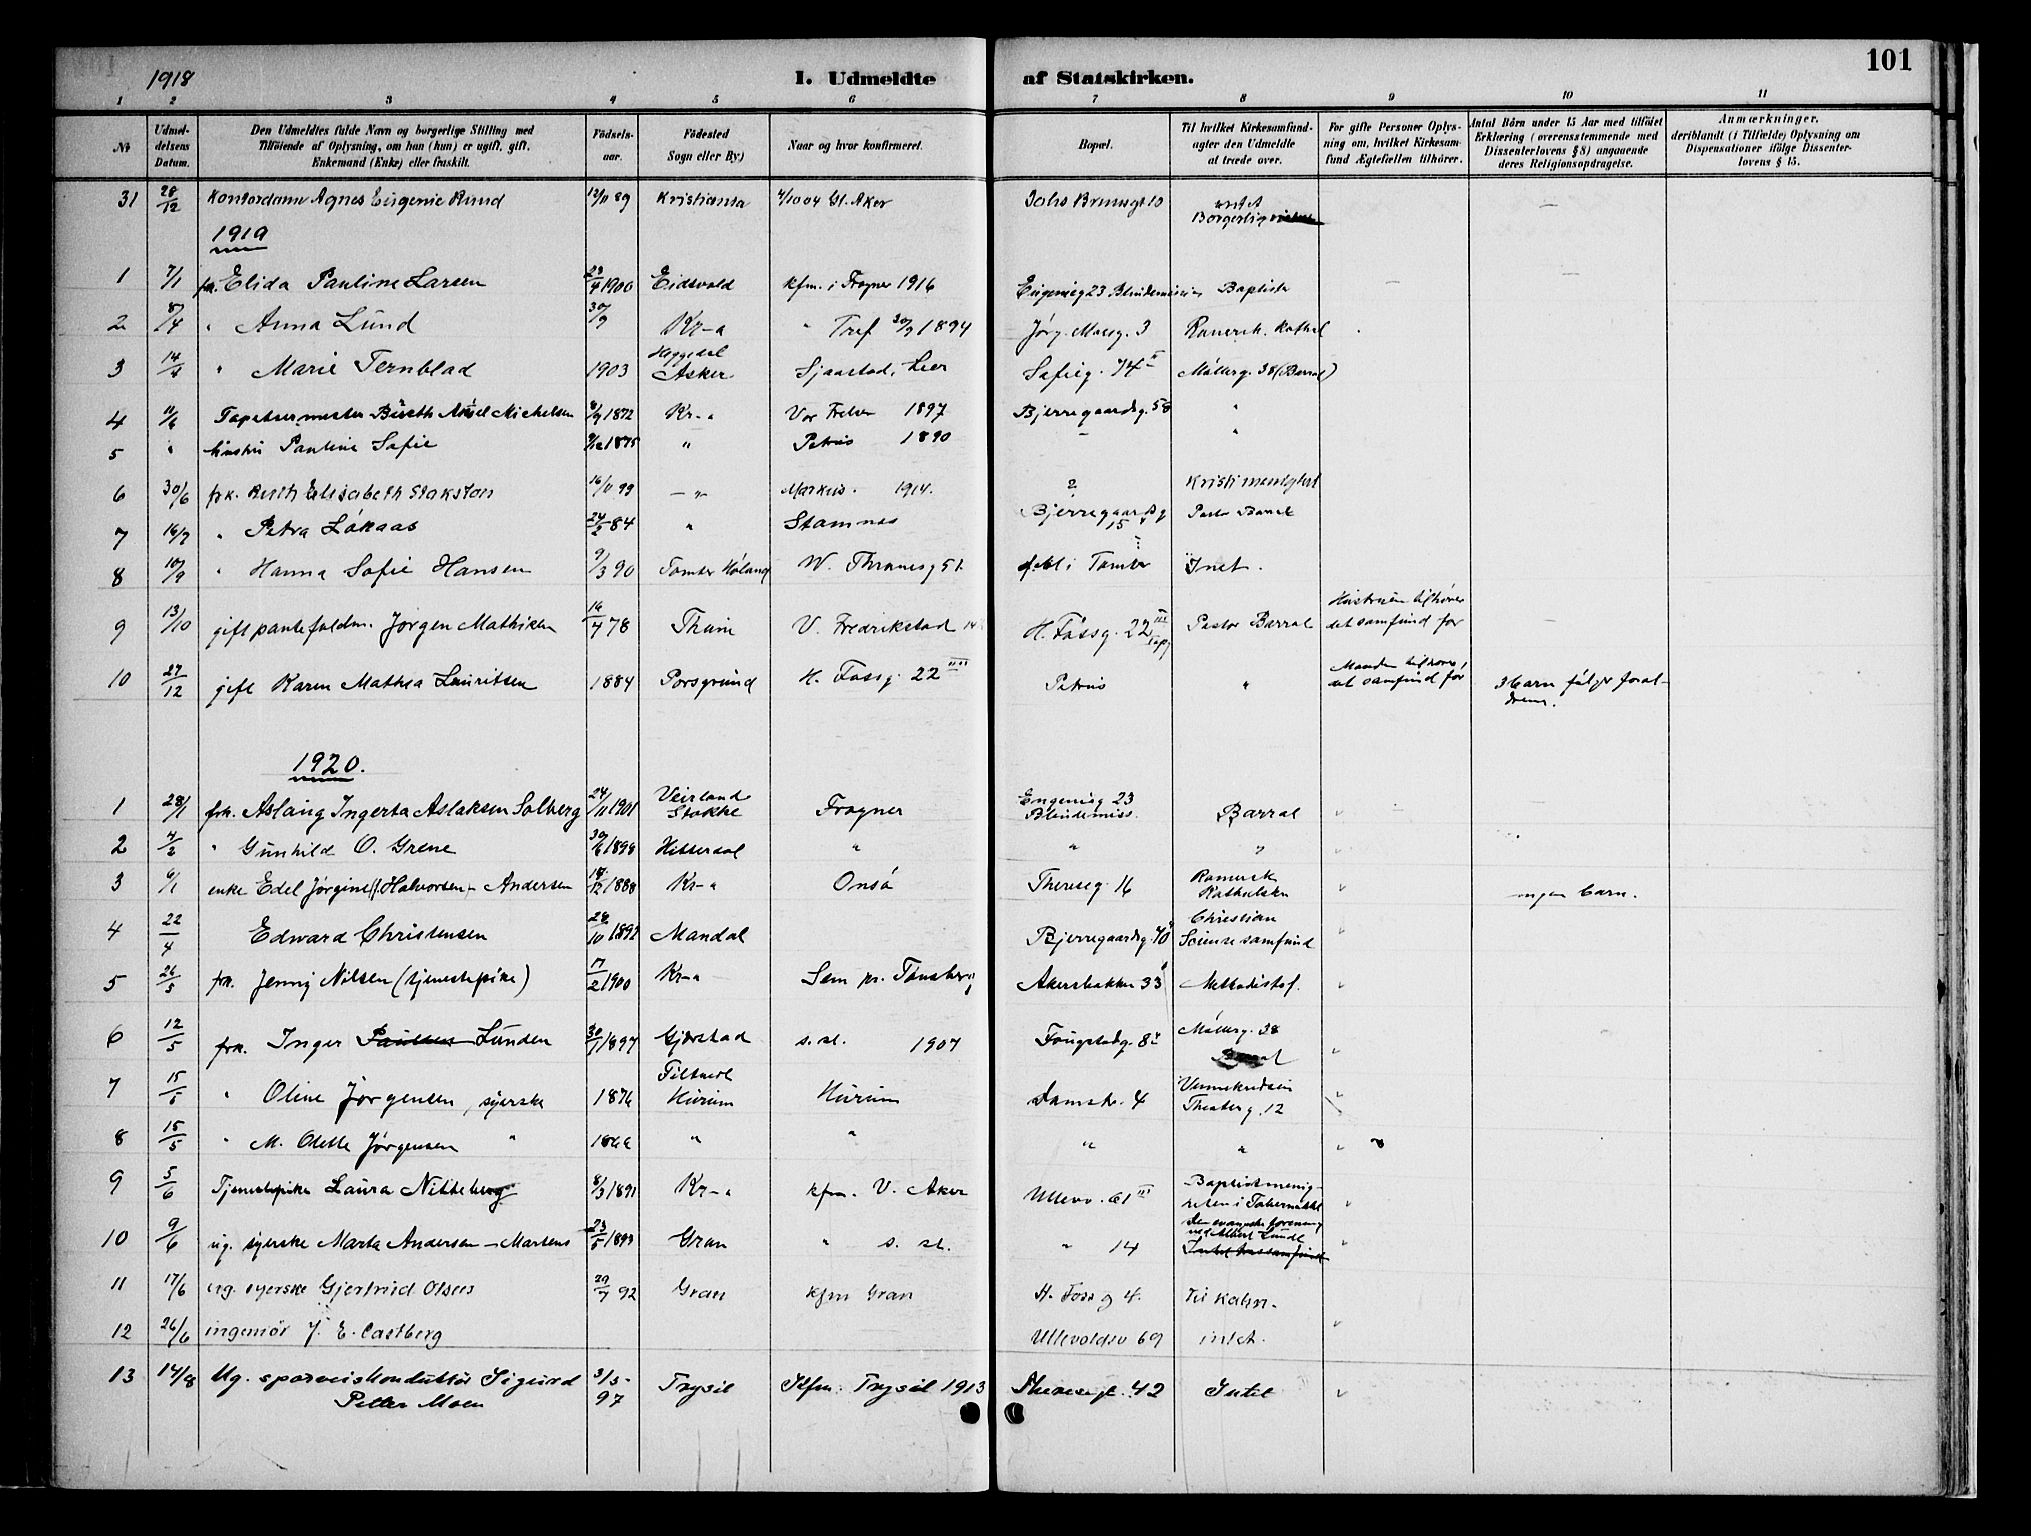 1918
I. Udmeldte af Statskirken.
101
1 2 3 4 5 6 7 8 9 10 11
No
Udmeldelsens Datum.
Den Udmeldtes fulde Navn og borgerlige Stilling med
Tilføiende af Oplysning, om han (hun) er ugift, gift,
Enkemand (Enke) eller fraskilt.
Fødselsaar.
Fødested
Sogn eller By)
Naar og hvor konfirmeret.
Bopæl.
Til hvilket Kirkesamfund
agter den Udmeldte
at træde over.
For gifte Personer Oplysning om, hvilket Kirkesamfund Ægtefællen tilhører.
Antal Børn under 15 Aar med tilføiet
Erklæring (overensstemmende med
Dissenterlovens § 8) angaaende
deres Religionsopdragelse.
Anmærkninger,
deriblandt (i Tilfælde) Oplysning om
Dispensationer ifølge Dissenterlovens § 15.
31 28/12 Kontordame Agnes Eugenie Ruud 12/11 89 Kristiania 4/10 04 Gl. Aker Johs Brunsgt 10 intet Borgerlig
1919
1 7/1 frk. Elida Pauline Larsen 23/4 1900 Eidsvold kfm. i Frogner 1916 Eugenieg 23 Baptister
2 8/4 " Anna Lund 30/9 Kr-a " Tref 30/9 1894 Jørg. Moesg. 3 Romersk. Kathol
3 14/4 " Marie Ternblad 1903 Heggedal Asker Sjaastad, Lier Sofieg. 74 II Møllerg. 38 (Barral)
4 11/6 Tapetserermester Michelsen 8/9 1872 Kr-a Vor Frelser 1897 Bjerregaardsg. 58 "
5 " hustru Pauline Sofie 1875 " Petrus 1890 " "
6 30/6 frk. Ruth Elisabeth Stakston 16/11 99 — " — Markus. 1914. ? Kristi menighet
7 16/7 " Petra Løkaas 24/2 84 " Stamnes Bjerregaardsg 15 Pastor Barral
8 10/9 " Hanna Sofie Hansen 9/3 90 Tomter Høland W. Thranesg 51 f. i Tomter Intet.
9 13/10 gift Jørgen Mathisen 16/4 78 Thune V. Fredrikstad H. Fossg. 22 III Pastor Barral Hustruen tilhører det samfund før
10 27/12 gift Karen Mathea Lauritsen 1884 Porsgrund H. Fossg. 22 III Petrus " Manden tilhører det samfund før 3 barn følger forældrene.
1920.
1 28/1 frk. Aslaug Ingerta Aslaksen Solberg 24/11 1901 Veirland Stokke Frogner Eugenieg 23 Blindemiss. Barral
2 4/2 " Gunhild O. Grene 30/6 1899 Hitterdal " " "
3 6/1 enke Edel Jørgine Halvorsen - Andersen 18/12 1888 Kr-a Onsø Thereseg. 16 Romersk Katholske ingen barn.
4 22/4 Edward Christensen 28/10 1892 Mandal Bjerregaardsg. 70 Christian Sciense samfund
5 26/5 frk. Jenny Nilsen (tjenestepike) 17/2 1900 Kr-a Sem pr. Tønsberg Akersbakken 33 Methodistsf.
6 12/5 frk. Inger Paulsen Lunden 30/1 1897 Gjerstad s. st. 1907 Fougstadg. 8 Møllerg. 38 Barral
7 15/5 " Oline Jørgensen, syerske 1876 Filtvedt Hurum Hurum Damstr. 4 Vennekredsen Theaterg. 12
8 15/5 " M. Olette Jørgensen " 1866 " " " "
9 5/6 Tjenestepike Laura Nitteberg 8/3 1891 Kr-a kfm. V. Aker Ullevv. 61 III Baptistmenigheten i Tabernaklet
10 9/6 ug. syerske Marta Andersen - Martens 23/5 1899 Gran " s. st. " 14 Den evangeliske forening ved Albert Lunde
11 17/6 ug. syerske Gjertrud Olsen 29/7 92 Gran kfm Gran H. Foss g 4. til Kahn.
12 26/6 ingeniør J. E. Castberg Ullevoldsv 69 intet.
13 14/8 Ug. sporveiskonduktør Sigurd Petter Moen 3/5 - 97 Trysil Kfm. Trysil 1913 Theresegt. 42 Intet